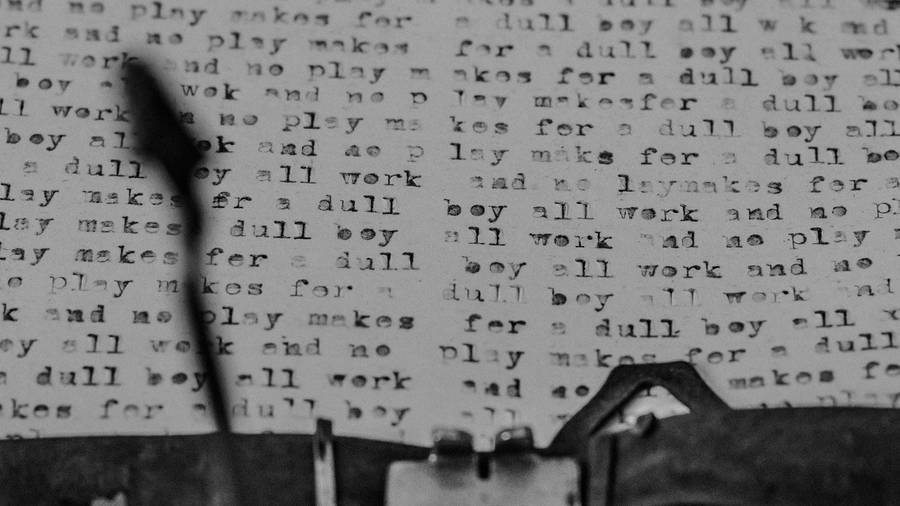 no play makes for a dull boy all w k and
rk and no play makes for a dull boy all work
ll work and no play m akes for a dull boy all
boy wok and no p lay makesfor a dull bo
ll work no play ma kes for a dull boy all
boy all ok and no p lay maks for a dull bo
a dull oy all work and no laymakes for a
lay makes fr a dull boy all work and no pl
lay makes dull boy all work and no play
lay makes fer a dull boy all work and no
o play m kes for a dull boy all work and
k and no play makes for a dull boy all
ey all work and no play makes for a dull
a dull boy all work and no makes fo
akes for a dull boy all